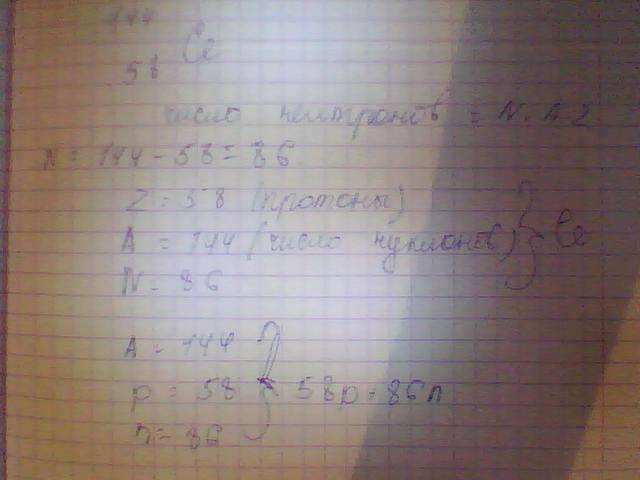 144
58 Ce
число нейтронов = N. A Z
N = 144 - 58 = 86
Z = 58 (протоны)
A = 144 (число нуклонов) } Ce
N = 86
A = 144
p = 58 } 58p - 86n
n = 86